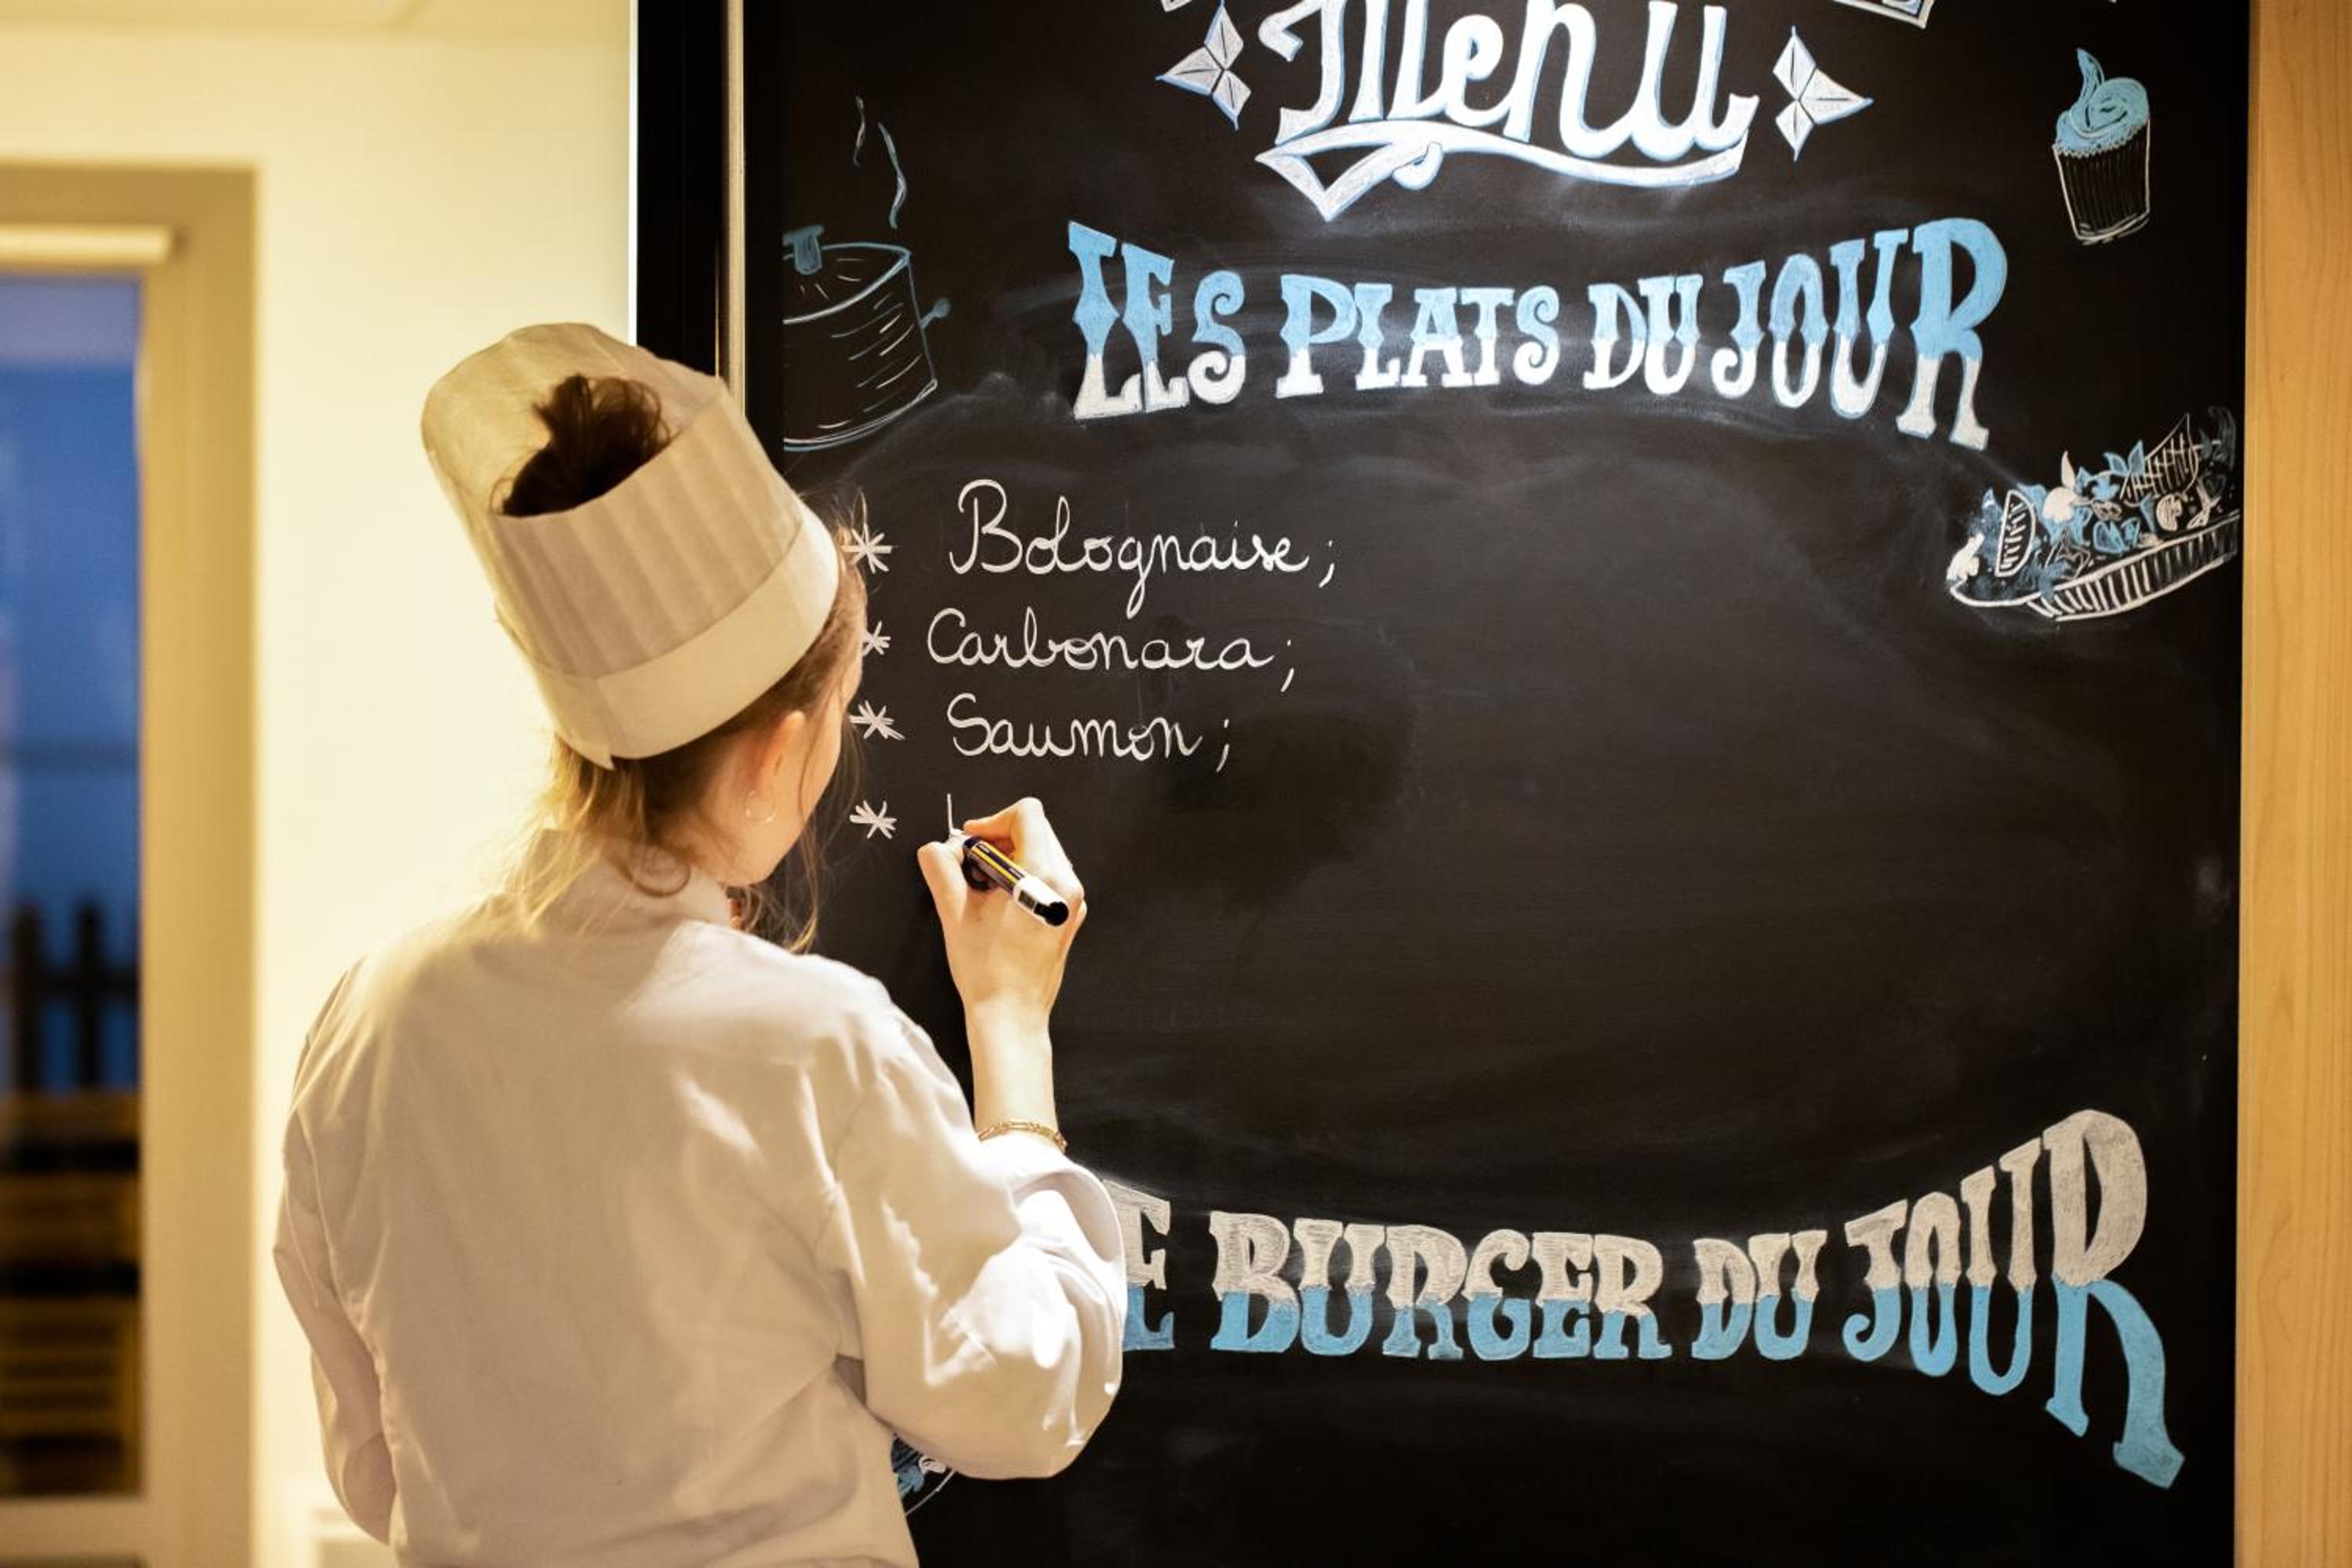 Menu
LES PLATS DU JOUR
* Bolognaise ;
* Carbonara ;
* Saumon ;
*
BURGER DU JOUR